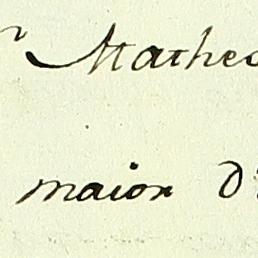 Matheo
maior d